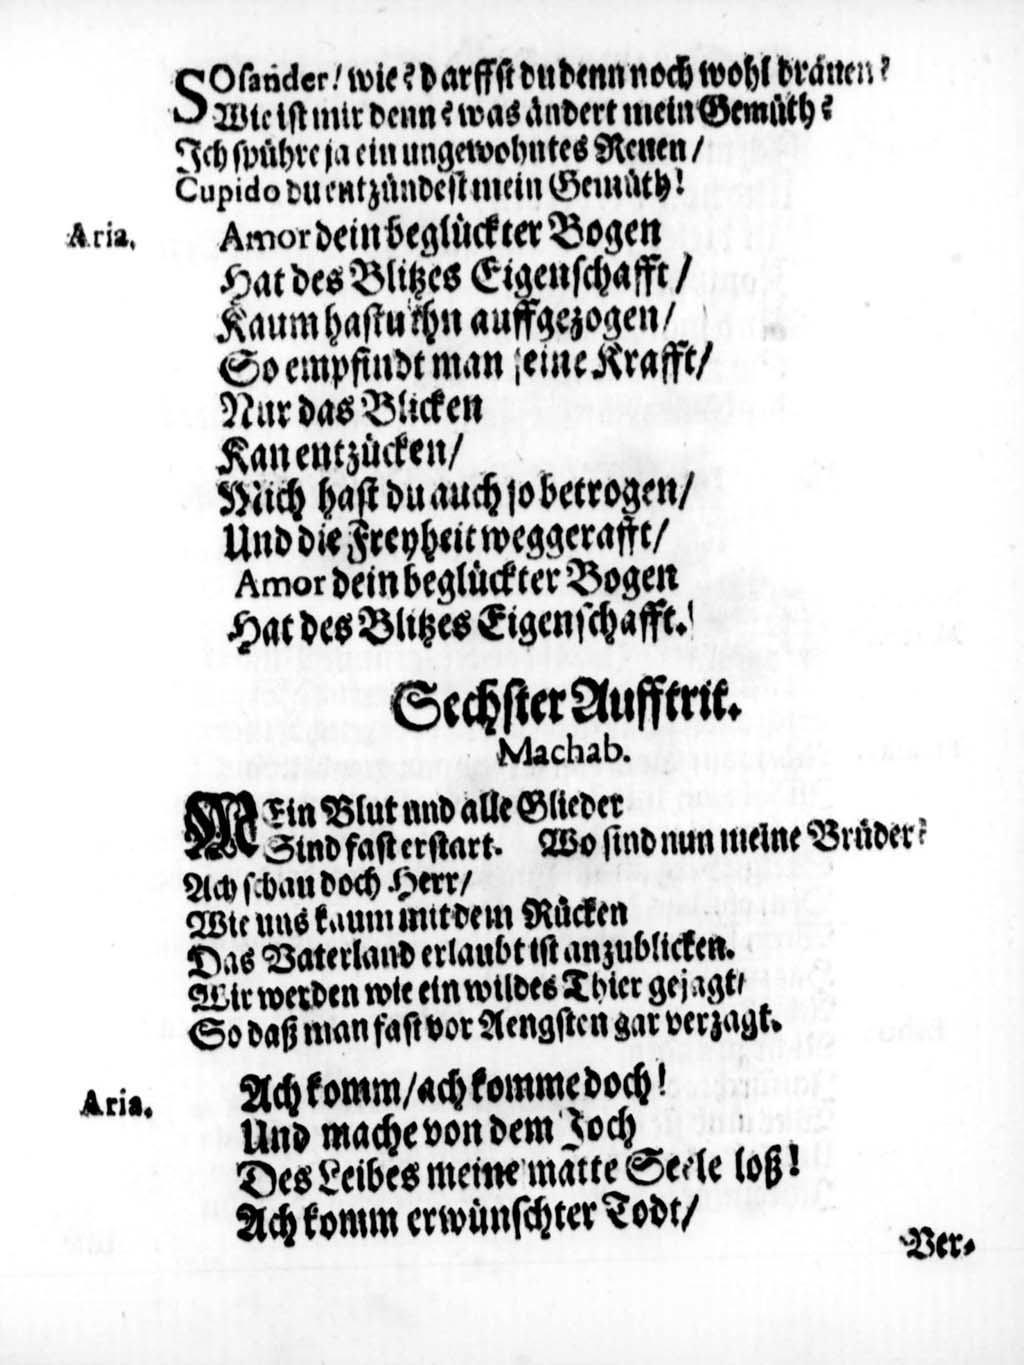 SOsander! wie? darffst du denn noch wohl dräuen?
Wie ist mir denn? was ändert mein Gemüth?
Ich spühre ja ein ungewohntes Reuen/
Cupido du entzündest mein Gemüth!
Aria. Amor dein beglückter Bogen
Hat des Blitzes Eigenschafft/
Kaum hastu ihn auffgezogen/
So empfindt man seine Krafft/
Nur das Blicken
Kan entzücken/
Mich hast du auch so betrogen/
Und die Freyheit weggerafft/
Amor dein beglückter Bogen
Hat des Blitzes Eigenschafft.
Sechster Aufftrit.
Machab.
MEin Blut und alle Glieder
Sind fast erstart. Wo sind nun meine Brüder?
Ach schau doch Herr/
Wie uns kaum mit dem Rücken
Das Vaterland erlaubt ist anzublicken.
Wir werden wie ein wildes Thier gejagt/
So daß man fast vor Aengsten gar verzagt.
Aria. Ach komm/ ach komme doch!
Und mache von dem Joch
Des Leibes meine matte Seele loß!
Ach komm erwünschter Todt/
Ver-